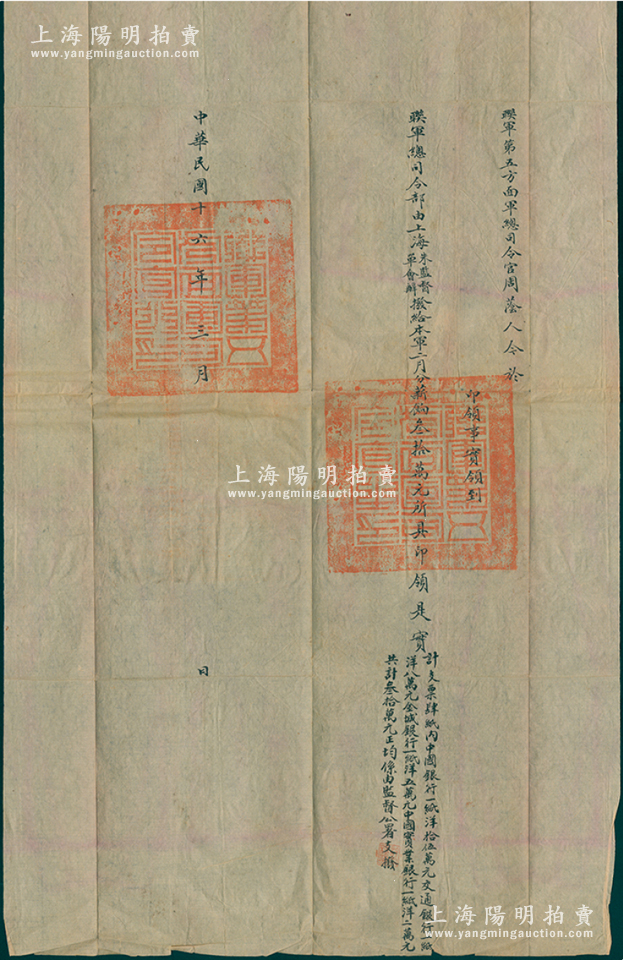 上海陽明拍賣
www.yangmingauction.com
聯軍第五方面軍總司令官周蔭人令於
印領事實領到
聯軍總司令部由上海朱監督單會辦撥給本軍二月分薪餉叁拾萬元所具印領是實
計支票肆紙內中國銀行一紙洋拾伍萬元交通銀行一紙
洋八萬元金城銀行一紙洋五萬元中國實業銀行一紙洋二萬元
共計叁拾萬元正均係由監督公署支撥
中華民國十六年三月
日
上海陽明拍賣
www.yangmingauction.com
上海陽明拍賣
www.yangmingauction.com